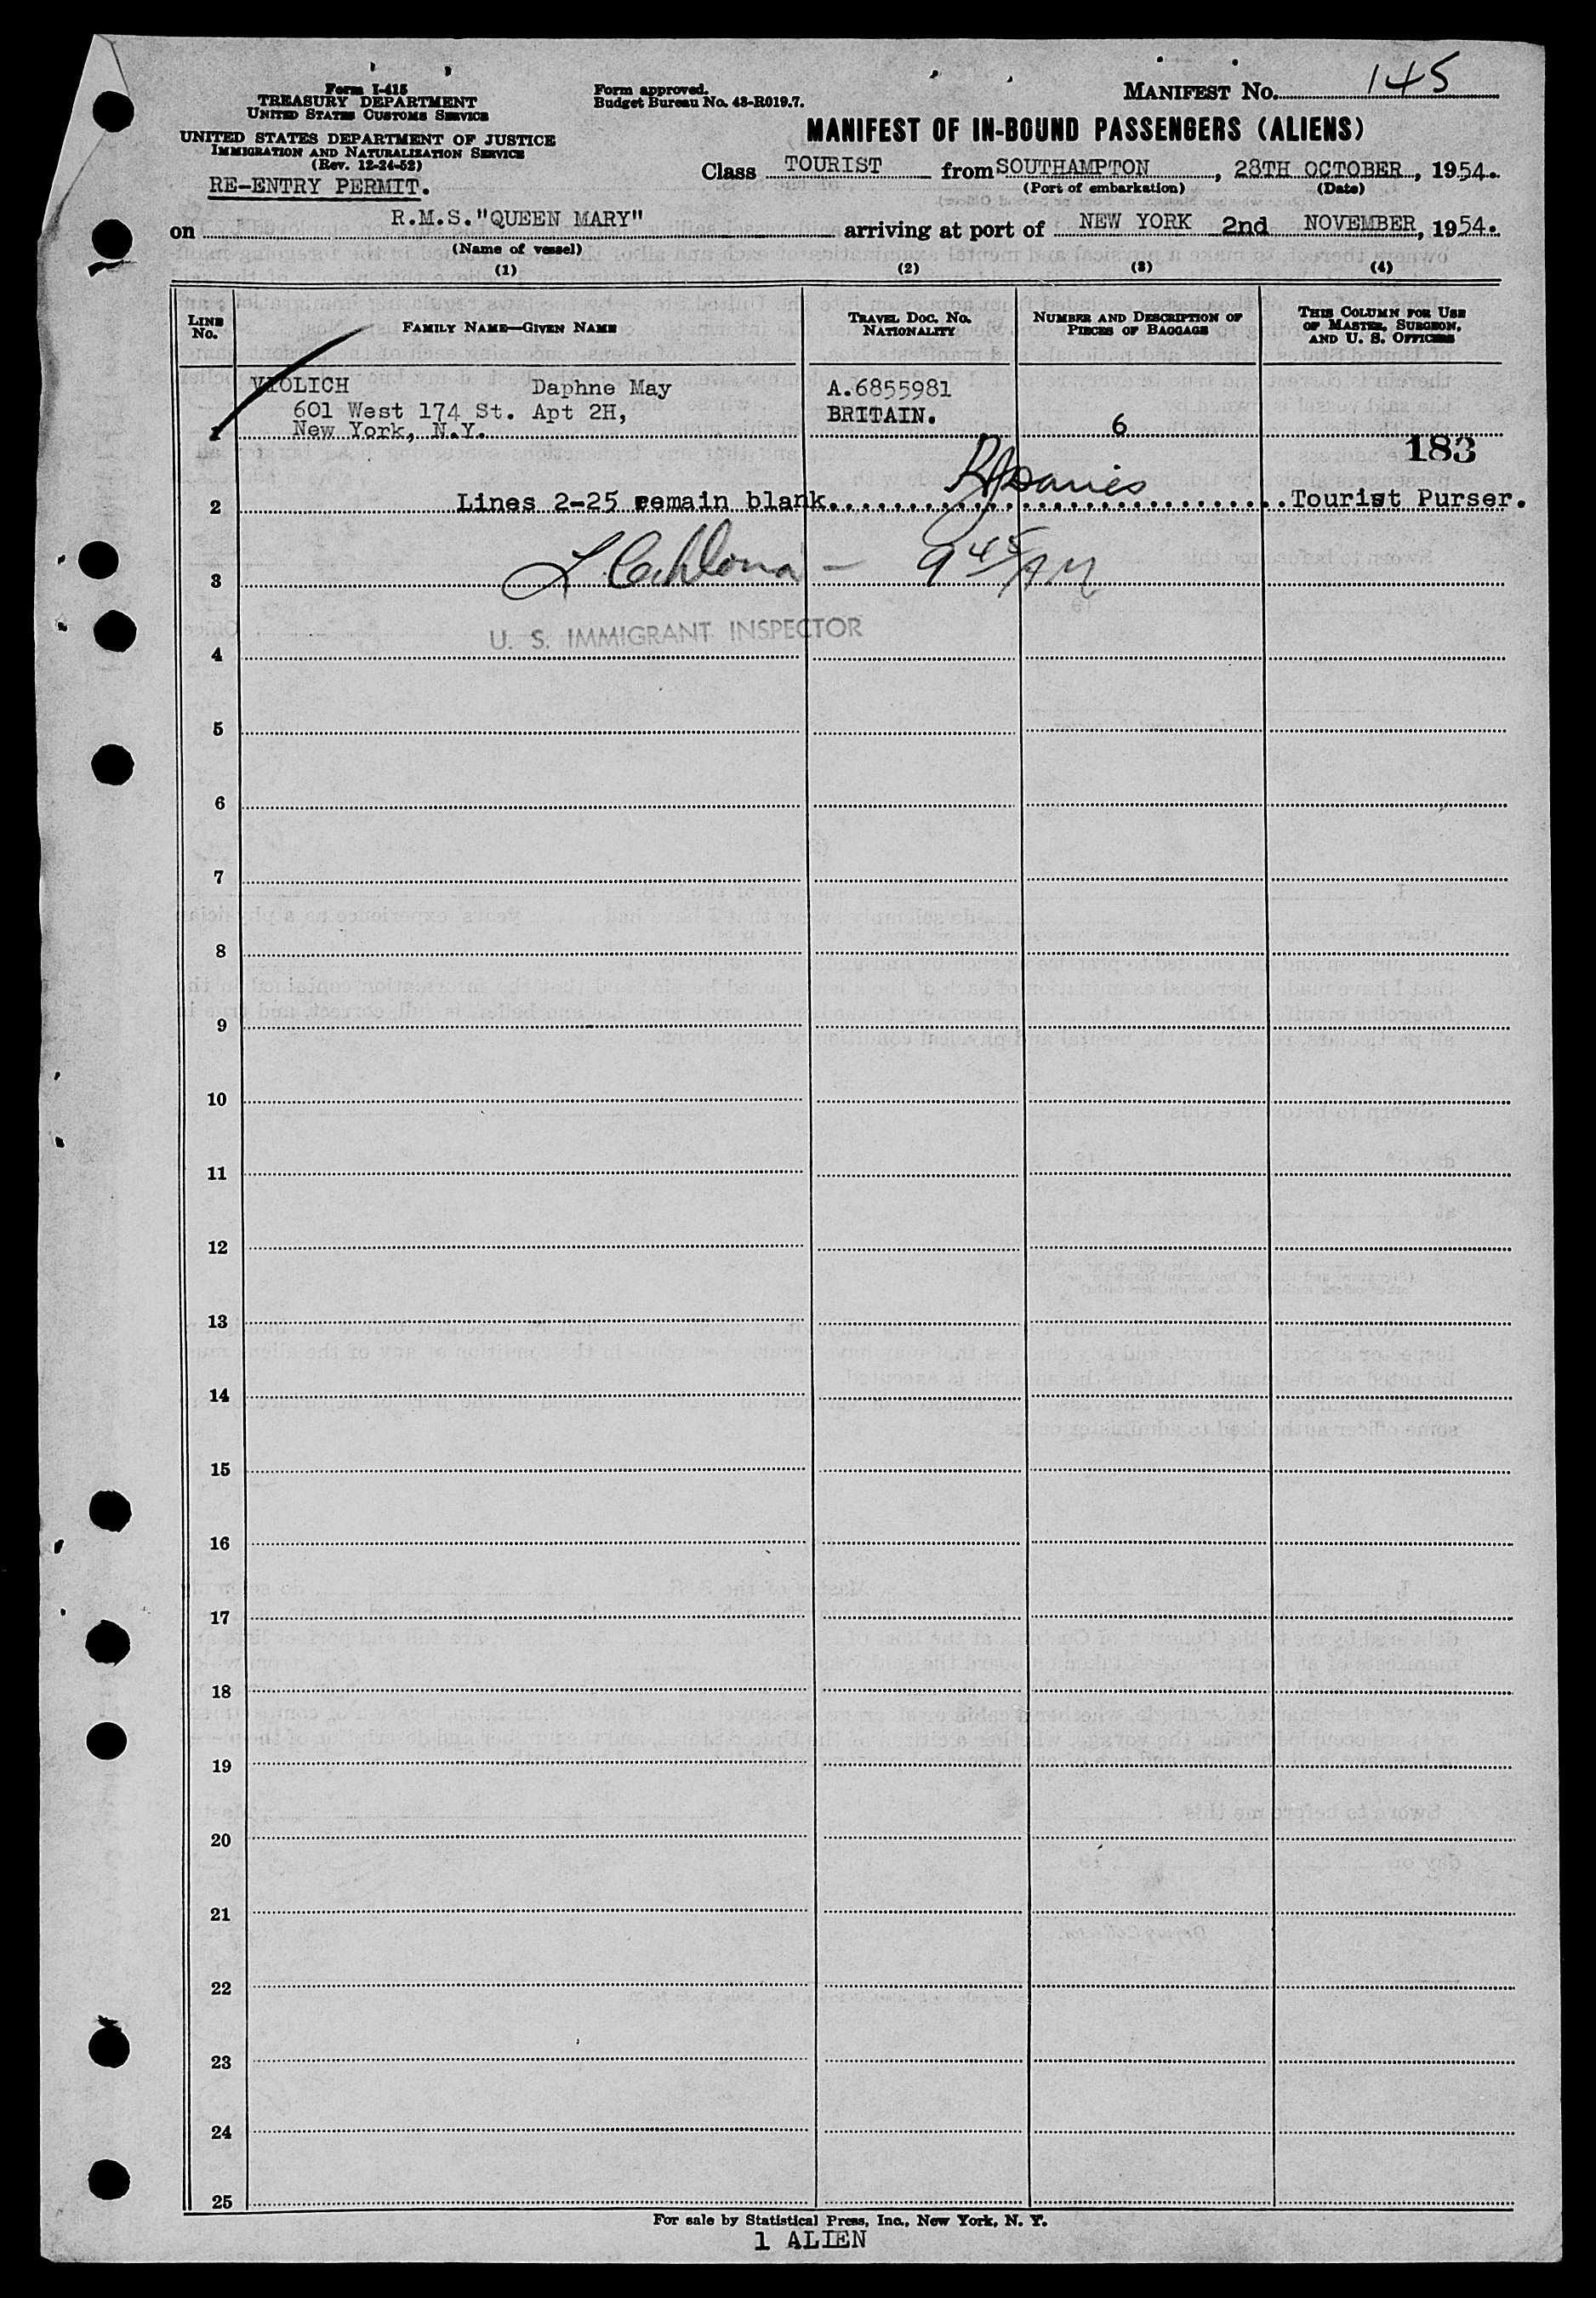 Form I-415
TREASURY DEPARTMENT
UNITED STATES CUSTOMS SERVICE
UNITED STATES DEPARTMENT OF JUSTICE
IMMIGRATION AND NATURALIZATION SERVICE
(Rev. 12-24-52)
RE-ENTRY PERMIT.
Form approved.
Budget Bureau No. 43-R019.7.
MANIFEST No. 145
MANIFEST OF IN-BOUND PASSENGERS (ALIENS)
Class TOURIST from SOUTHAMPTON, 28TH OCTOBER, 1954.
(Port of embarkation) (Date)
on R.M.S."QUEEN MARY" arriving at port of NEW YORK 2nd NOVEMBER, 1954.
(Name of vessel)
(1) (2) (3) (4)
LINE No. FAMILY NAME—GIVEN NAME TRAVEL DOC. No. NATIONALITY NUMBER AND DESCRIPTION OF PIECES OF BAGGAGE THIS COLUMN FOR USE OF MASTER, SURGEON, AND U. S. OFFICERS
VIOLICH Daphne May A.6855981
601 West 174 St. Apt 2H, BRITAIN.
1 New York, N.Y. 6
183
2 Lines 2-25 remain blank. Davies Tourist Purser.
3 9 45 AM
U. S. IMMIGRANT INSPECTOR
4
5
6
7
8
9
10
11
12
13
14
15
16
17
18
19
20
21
22
23
24
25
For sale by Statistical Press, Inc., New York, N. Y.
1 ALIEN